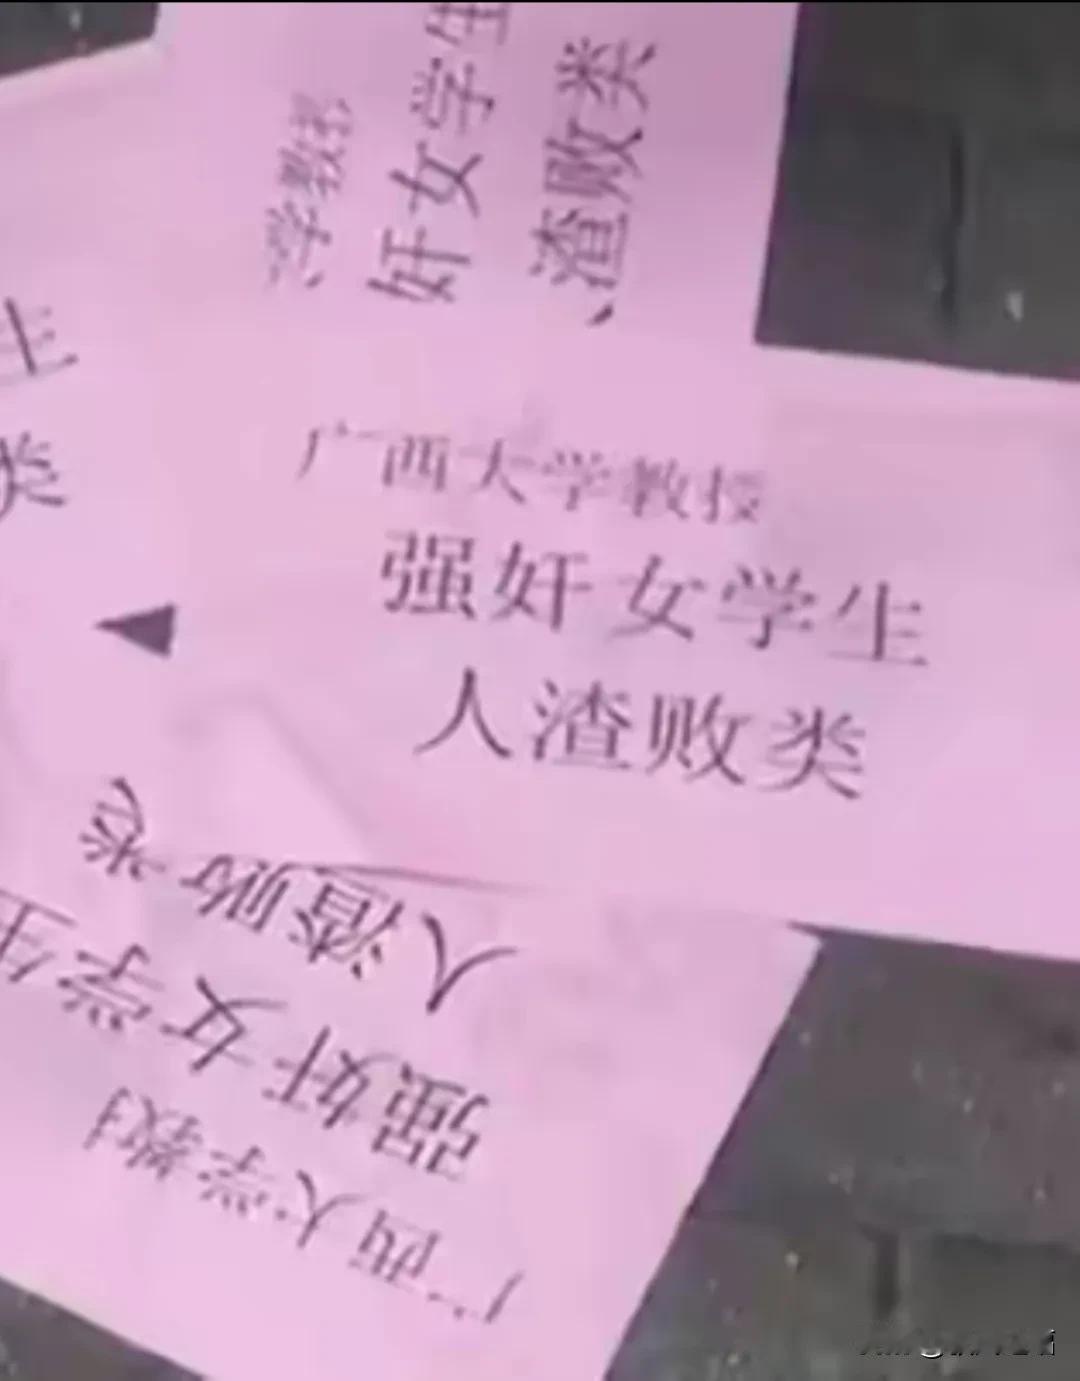 学教授
奸女学生
渣败类
生
类
广西大学教授
强奸女学生
人渣败类
广西大学教
强奸女学生
人渣败类